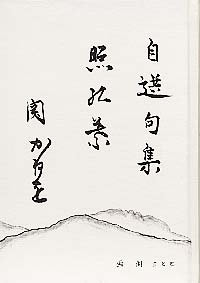 自選句集
照紅葉
関かねを